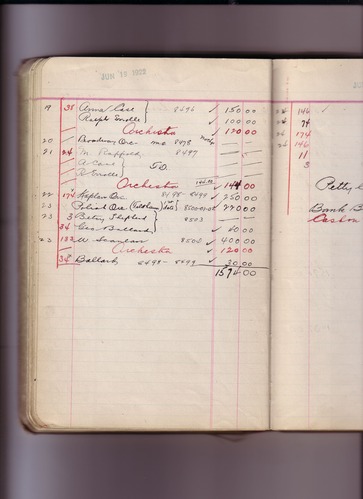 JUN 19 1922
19 38 Anna Case 8496 ✓ 150 00
Ralph Errolle ✓ 100 00
Orchestra ✓ 120 00
20 Broadway Orc 8478
21 24 M. Rappold 8497
A Case TD
R Errolle
Orchestra 144.00 ✓ 144 00
22 174 Kaplan Orc 8498-8499 ✓ 250 00
23 Polish Orc ✓ 220 00
23 3 Betsy Shepherd 8503
34 Geo Ballard ✓ 60 00
23 132 W Scanlan 8504 ✓ 400 00
Orchestra ✓ 120 00
34 Ballard 8498-8499 ✓ 30 00
1594 00
24 146 ✓
24 74
24 174
24 146
11
3
Petty
Bank B